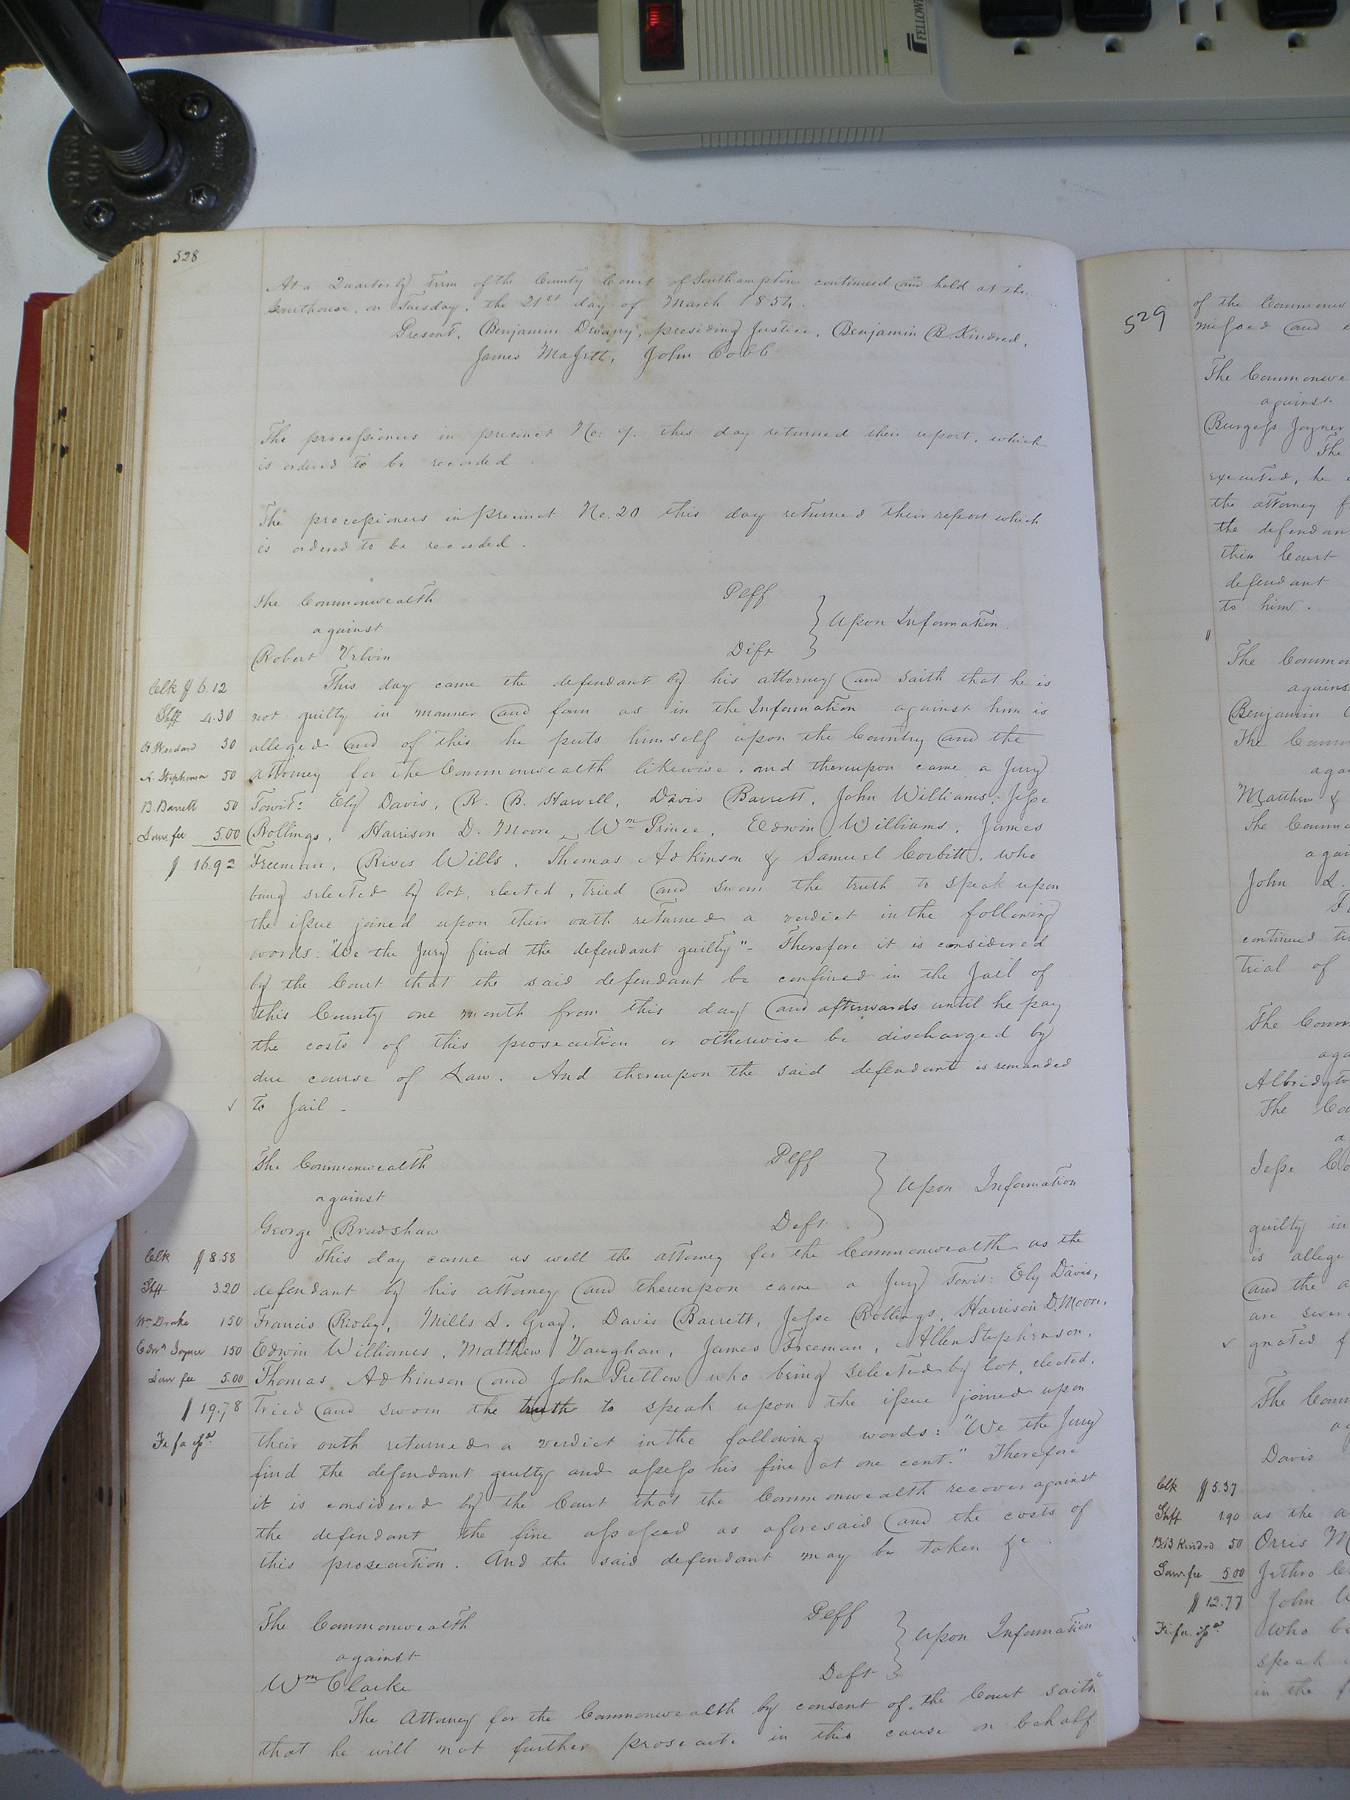 FELLOWES
528
At a Quarterly Term of the County Court of Southampton continued and held at the
Courthouse, on Tuesday, the 21st day of March 1854.
Present, Benjamin Devany, presiding Justice, Benjamin B. Kindred,
James Maget, John Cobb
The processioners in precinct No. 9. this day returned their report, which
is ordered to be recorded.
The processioners in precinct No. 20 this day returned their report which
is ordered to be recorded.
The Commonwealth Plff
against } Upon Information
Robert Deft
This day came the defendant by his attorney and saith that he is
Clk $6.12
not guilty in manner and form as in the Information against him is
Shff 4.30
alleged and of this he puts himself upon the Country and the
30
attorney for the Commonwealth likewise. and thereupon came a Jury
A. Stephenson 50
Towit: Ely Davis, R. B. Harvell, Davis Barrett, John Williams, Jesse
B. Barrett 50
Rollings, Harrison D. Moore, Wm Prince, Edwin Williams, James
Law. fee 5.00
Freeman, Rives Wills, Thomas Adkinson & Samuel Corbitt, who
$16.92
being selected by lot, elected, tried and sworn the truth to speak upon
the issue joined upon their oath returned a verdict in the following
words: "We the Jury find the defendant guilty"- Therefore it is considered
by the Court that the said defendant be confined in the Jail of
this County one month from this day and afterwards until he pay
the costs of this prosecution or otherwise be discharged by
due course of Law. And thereupon the said defendant is remanded
to Jail -
The Commonwealth Plff
against } Upon Information
George Bradshaw Deft
This day came as well the attorney for the Commonwealth as the
Clk $8.58
defendant by his attorney and thereupon came a Jury Towit: Ely Davis,
Shff 3.20
Francis Ricks, Mills L. Gray, Davis Barrett, Jesse Rollings, Harrison D. Moore,
Wm Drake 150
Edwin Williams, Matthew Vaughan, James Freeman, Allen Stephenson,
Edwn Joyner 150
Thomas Adkinson and John Pretlow who being selected by lot, elected,
Law fee 5.00
tried and sworn the truth to speak upon the issue joined upon
$19.78
their oath returned a verdict in the following words: "We the Jury
Fi fa issd
find the defendant guilty and assess his fine at one cent." Therefore
it is considered by the Court that the Commonwealth recover against
the defendant the fine assessed as aforesaid and the costs of
this prosecution. And the said defendant may be taken &c.
The Commonwealth Plff
against } Upon Information
Wm Clarke Deft
The Attorney for the Commonwealth by consent of the Court saith
that he will not further prosecute in this cause on behalf
529
of the Commonw
The Commonwe
against
Burgess Joyner
The
executed, he
the attorney f
the defendan
this Court
defendant
to him.
The Common
against
Benjamin
The Common
aga
Matthew &
The Comm
again
John L.
continued
trial of
The Comm
aga
Albridgto
The Co
a
Jesse
guilty in
is allege
and the a
are
gnated f
The Comm
Davis
Clk $5.37
Shff 1.90 as the a
B.B. Kindrd 50 Orris M
Law. fee 5.00 Jethro
$12.77 John
Fi. fa. issd who b
speak
in the f